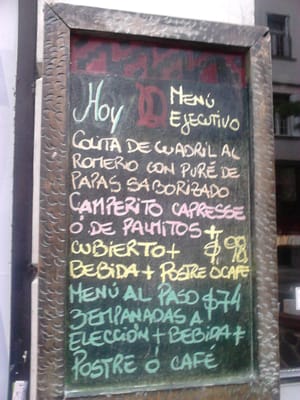 Hoy MENÚ
EJECUTIVO
COLITA DE CUADRIL AL
ROMERO CON PURÉ DE
PAPAS SABORIZADO
CAMPERITO CAPRESSE
Ó DE PALMITOS +
CUBIERTO + $98
BEBIDA + POSTRE Ó CAFE
MENÚ AL PASO $74
3 EMPANADAS A
ELECCIÓN + BEBIDA +
POSTRE Ó CAFÉ